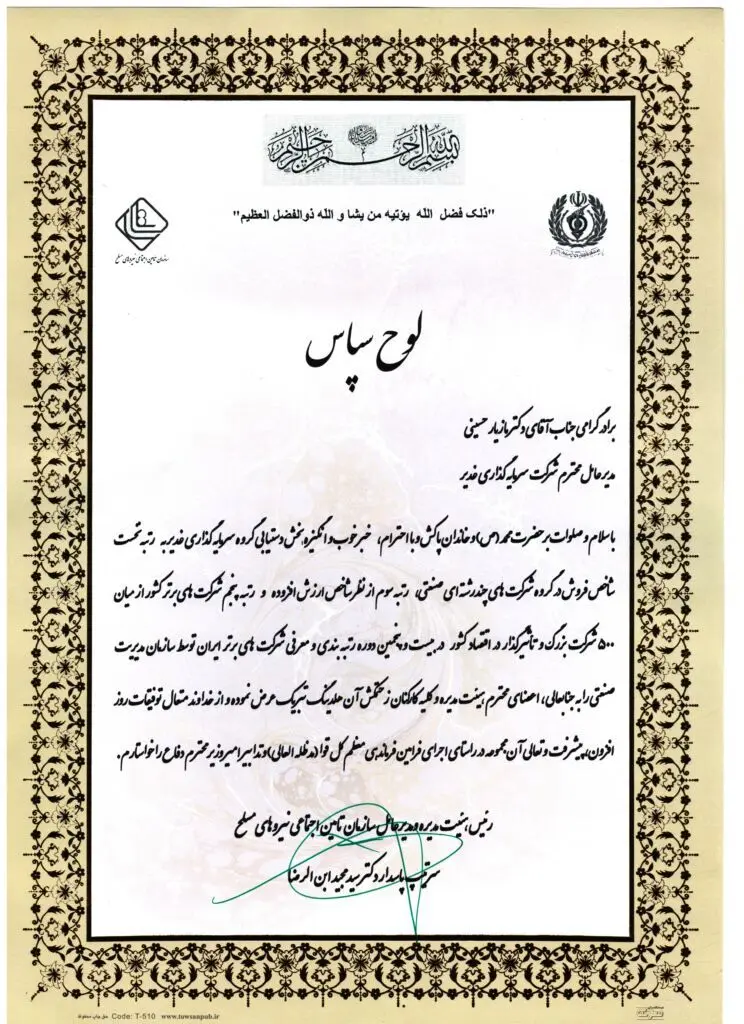 بسم الله الرحمن الرحیم
"ذلک فضل الله یؤتیه من یشا و الله ذوالفضل العظیم"
سازمان تامین اجتماعی نیروهای مسلح
لوح سپاس
برادر گرامی جناب آقای دکتر مازیار حسینی
مدیرعامل محترم شرکت سرمایه گذاری غدیر
باسلام و صلوات بر حضرت محمد (ص) و خاندان پاکش و با احترام، خبر خوب و انگیزه بخش دستیابی گروه سرمایه گذاری غدیر به رتبه نخست
شاخص فروش در گروه شرکت های چند رشته ای صنعتی، رتبه سوم از نظر شاخص ارزش افزوده و رتبه پنجم شرکت های برتر کشور از میان
۵۰۰ شرکت بزرگ و تأثیرگذار در اقتصاد کشور در بیست و پنجمین دوره رتبه بندی و معرفی شرکت های برتر ایران توسط سازمان مدیریت
صنعتی را به جنابعالی، اعضای محترم هیئت مدیره و کلیه کارکنان زحمتکش آن هلدینگ تبریک عرض نموده و از خداوند متعال توفیقات روز
افزون، پیشرفت و تعالی آن مجموعه در راستای اجرای فرامین فرماندهی معظم کل قوا (مدظله العالی) و تدابیر امیر وزیر محترم دفاع را خواستارم.
رئیس هیئت مدیره و مدیرعامل سازمان تامین اجتماعی نیروهای مسلح
سرتیپ پاسدار دکتر سید مجید ابن الرضا
حق چاپ محفوظ Code: T-510 www.tawsanpub.ir